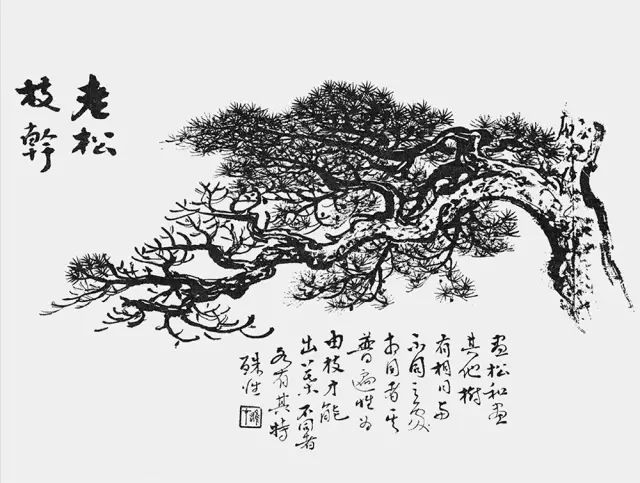 老松
枝幹
畫松和畫
其他樹
有相同与
不同之處
相同者其
普遍性为
由枝才能
出葉不同者
各有其特
殊性